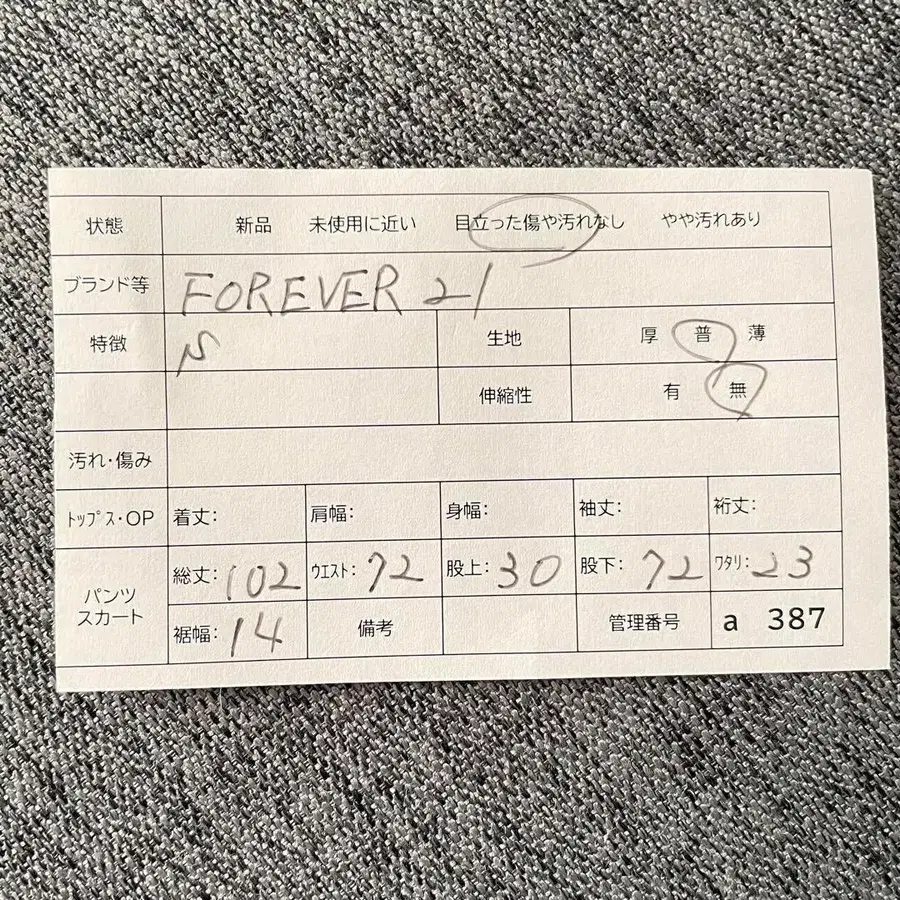 状態 新品 未使用に近い 目立った傷や汚れなし やや汚れあり
ブランド等 FOREVER 21
特徴 生地 厚 普 薄
伸縮性 有 無
汚れ・傷み
トップス・OP 着丈: 肩幅: 身幅: 袖丈: 裄丈:
パンツ スカート
総丈: 102 ウエスト: 72 股上: 30 股下: 72 ワタリ: 23
裾幅: 14 備考 管理番号 a 387